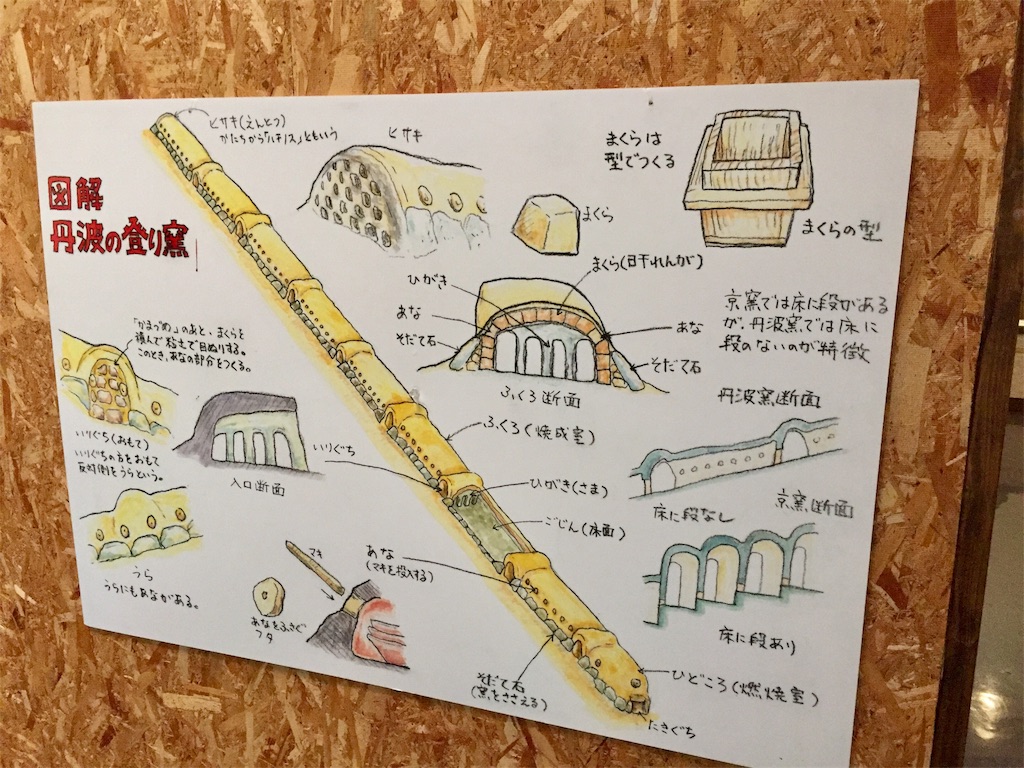 図解
丹波の登り窯
ヒサキ(えんとつ)
かたちから「ハチノス」ともいう
ヒサキ
まくら
まくらは
型でつくる
まくらの型
「かまづめ」のあと、まくらを
積んで粘土で目ぬりする。
このとき、あなの部分をつくる。
いりぐち(おもて)
いりぐちの方をおもて
反対側をうらという。
入口断面
うら
うらにもあながある。
ひがき
まくら(日干れんが)
あな
あな
そだて石
そだて石
ふくろ断面
京窯では床に段がある
が、丹波窯では床に
段のないのが特徴
丹波窯断面
床に段なし
京窯断面
床に段あり
ふくろ(焼成室)
いりぐち
ひがき(さま)
ごじん(床面)
あな
(マキを投入する)
マキ
あなをふさぐ
フタ
そだて石
(窯をささえる)
ひどころ(燃焼室)
たきぐち